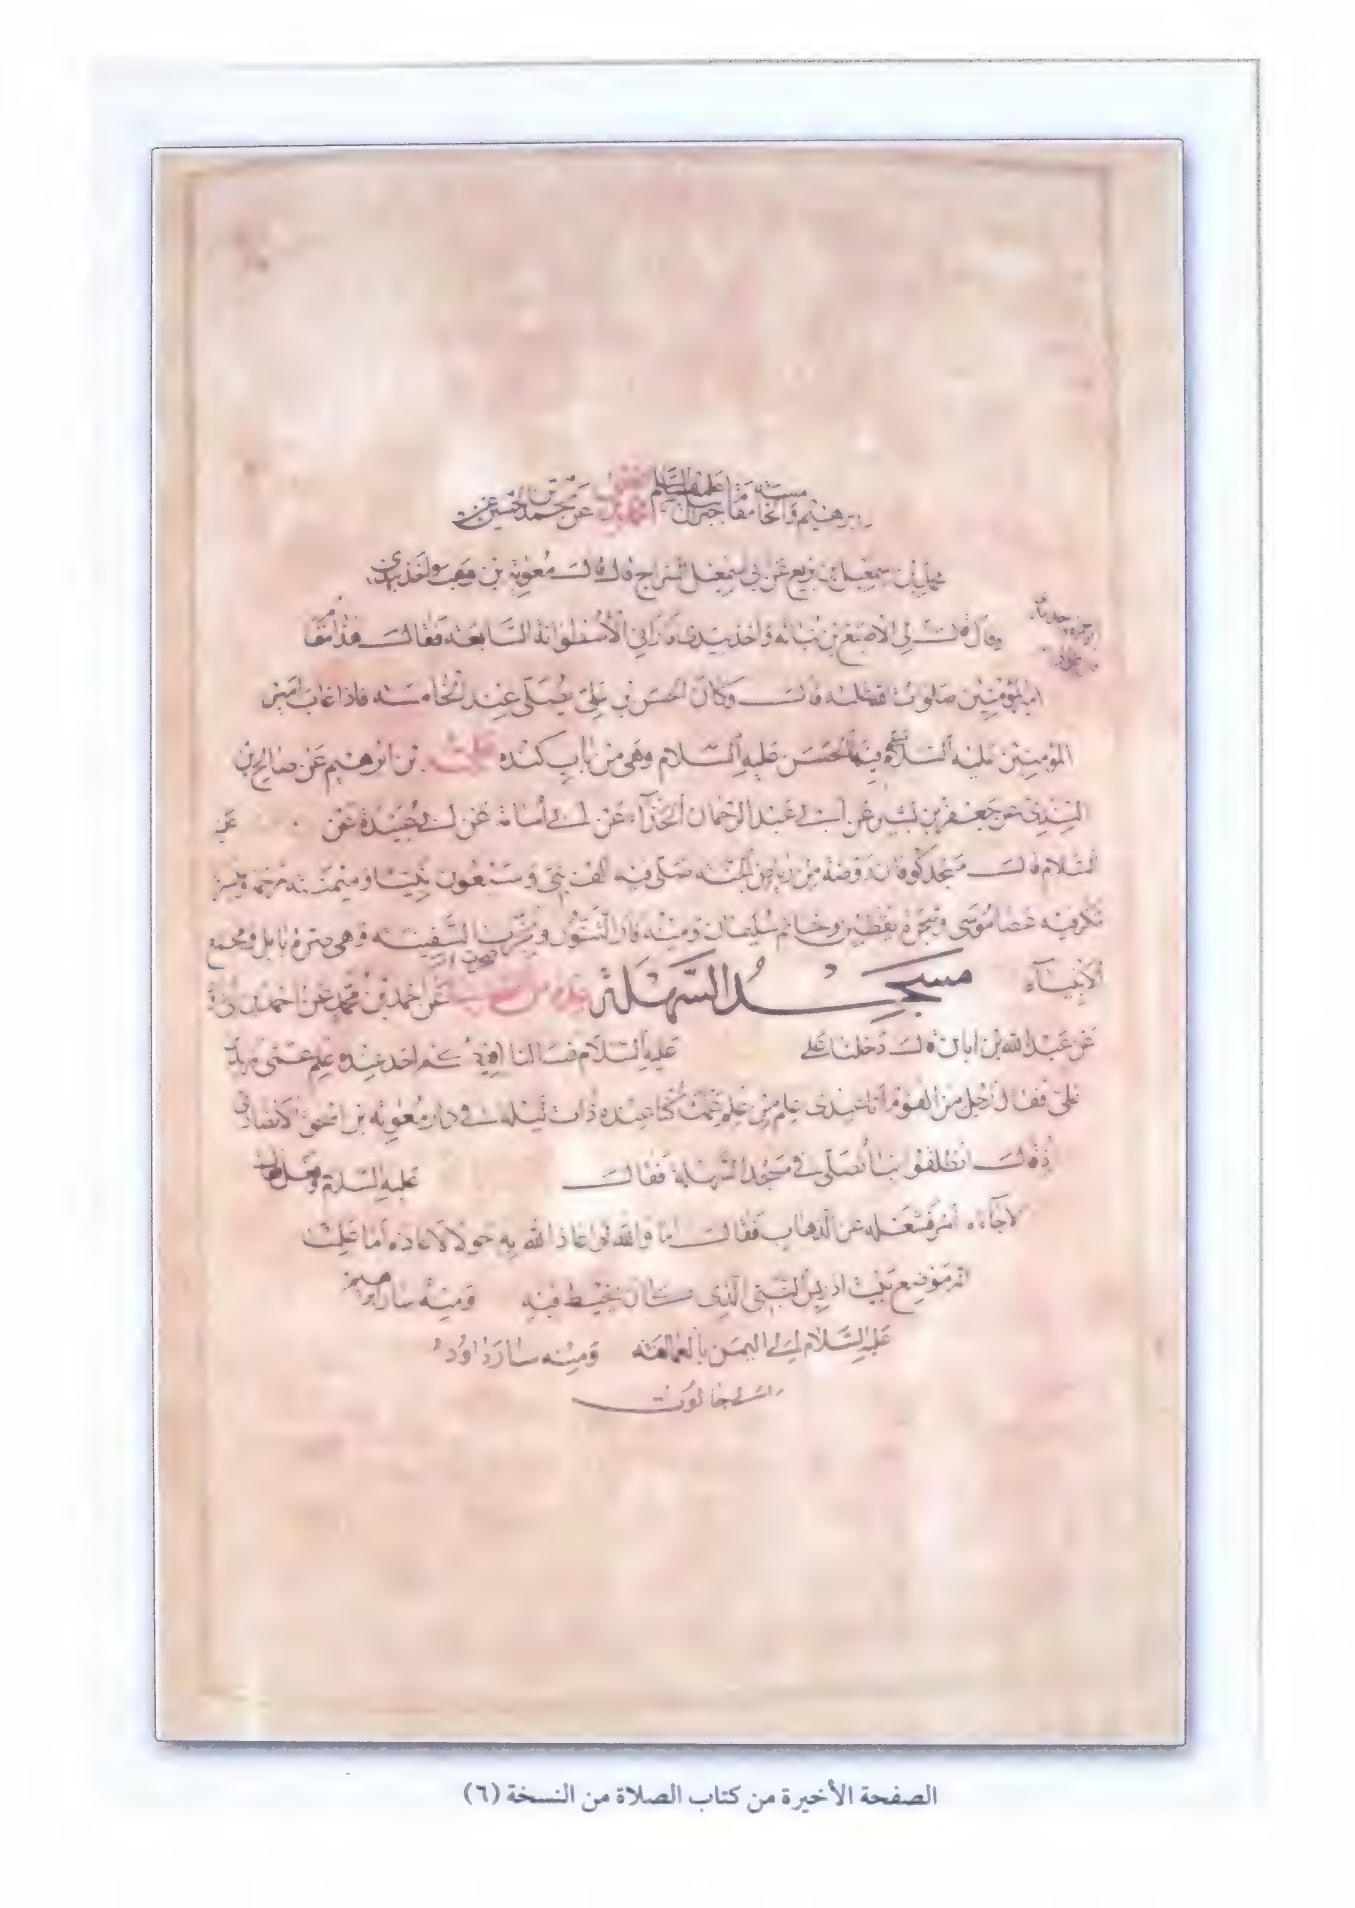 ابرهيم والخامسة مقام جبرئيل عليهما السلم علي بن محمد عن محمد بن الحسين عن
محمد بن اسمعيل بن بزيع عن ابي اسمعيل السراج قال قال معوية بن وهب واخذ بيدي
وقال قال لي الاصبغ بن نباتة واخذ بيدي فاراني الاسطوانة السابعة فقال هذا مقام
امير المؤمنين صلوات الله عليه قال وكان الحسن بن علي يصلي عند الخامسة فاذا غاب امير
المؤمنين عليه السلام صلى فيها الحسن عليه السلام وهي من باب كندة علي بن ابرهيم عن صالح بن
السندي عن جعفر بن بشير عن ابي عبد الرحمان الحذاء عن ابي أسامة عن ابي عبيدة عن
السلام قال مسجد كوفان روضة من رياض الجنة صلى فيه الف نبي وسبعون نبيا وميمنته رحمة
مكر فيه عصا موسى وشجرة يقطين وخاتم سليمان ومنه فار التنور ونجرت السفينة وهي صرة بابل ومجمع
الانبياء
مسجد السهلة عدة من عن احمد بن محمد عن احمد بن ابي
عن عبد الله بن ابان قال دخلنا على عليه السلام فسالنا افيكم احد عنده علم عمي زيد بن
علي فقال رجل من القوم أنا عندي علم من علم عمك كنا عنده ذات ليلة في دار معوية بن اسحق الانصاري
اذ قال انطلقوا بنا نصلي في مسجد السهلة فقال عليه السلام وفعل فقال
لا جاءه أمر فشغله عن الذهاب فقال أما والله لو اعاذ الله به حولا لاعاذه أما علمت
انه موضع بيت ادريس النبي الذي كان يخيط فيه ومنه سار ابرهيم
عليه السلام الى اليمن بالعمالقة ومنه سار داود
الى جالوت
الصفحة الأخيرة من كتاب الصلاة من النسخة (٦)